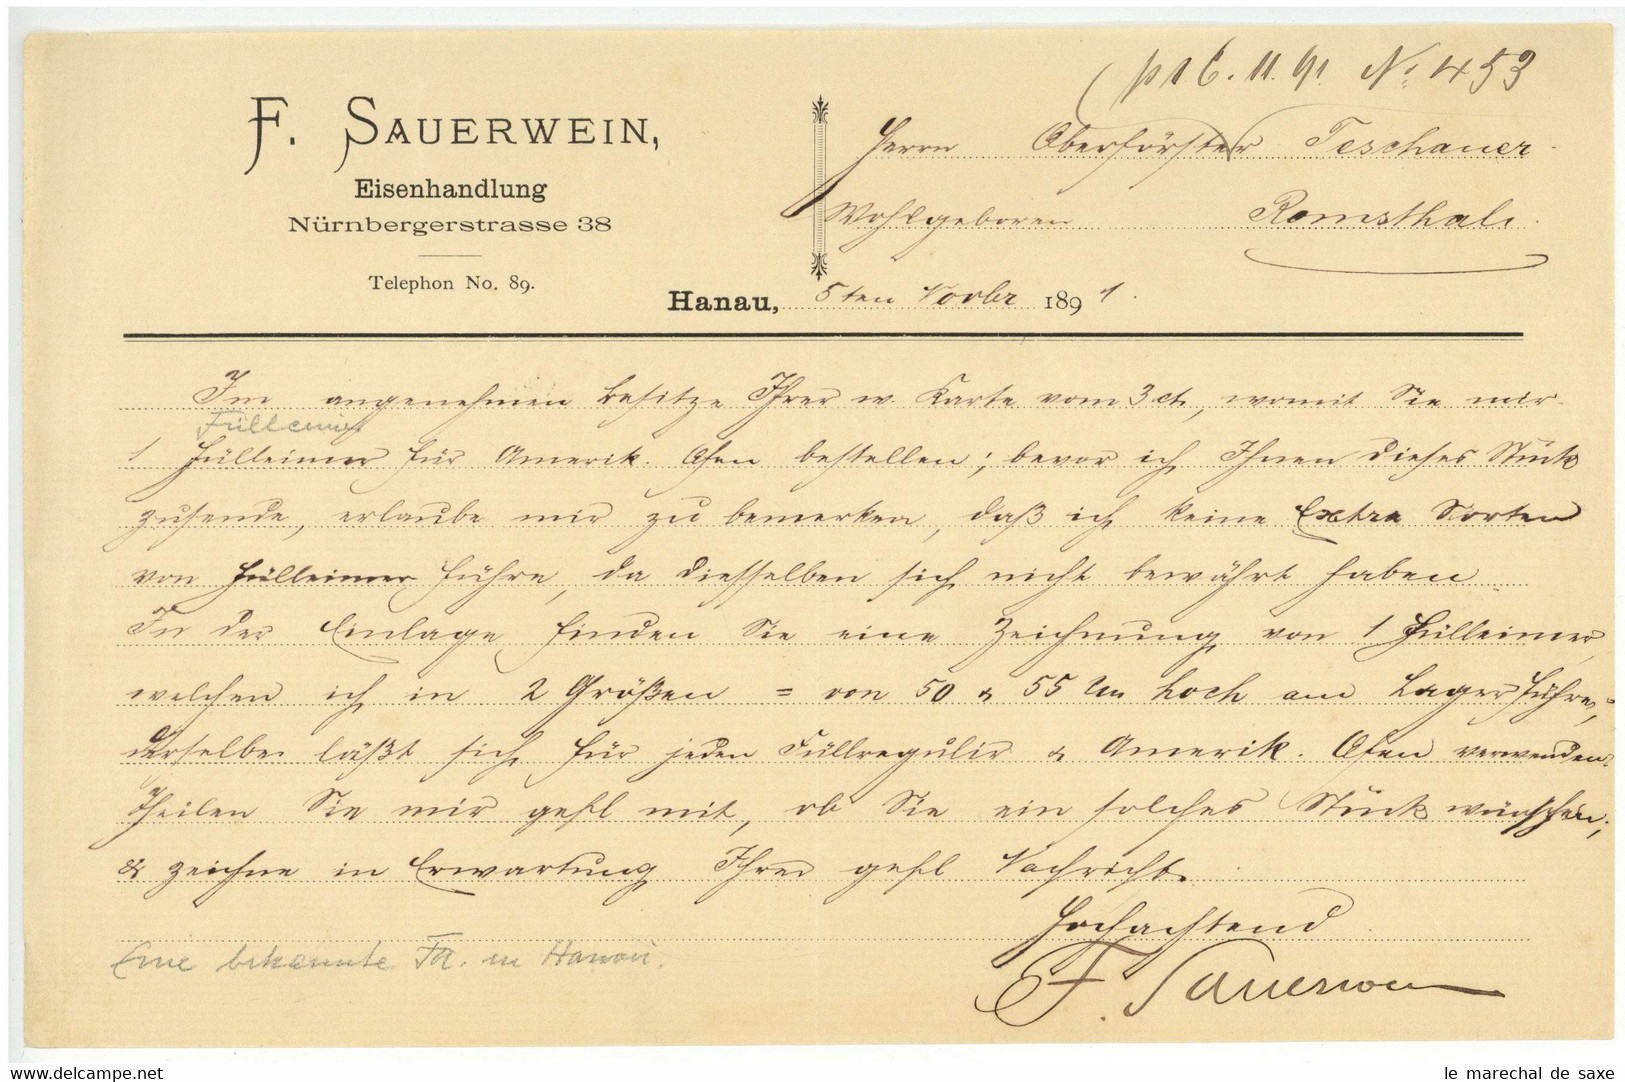 pr 6. 11. 91. No 453
F. SAUERWEIN,
Eisenhandlung
Nürnbergerstrasse 38
Telephon No. 89.
Herrn Oberförster Teschauer
Wohlgeboren Romsthal.
Hanau, 5ten Novbr 1891.
Im angenehmen Besitze Ihrer w. Karte vom 3 ct, womit Sie mir
Fülleimer
1 Fülleimer für Amerik. Ofen bestellen; bevor ich Ihnen dieses Stück
zusende, erlaube mir zu bemerken, daß ich keine Extra Sorten
von Fülleimer führe, da diesselben sich nicht bewährt haben
In der Einlage finden Sie eine Zeichnung von 1 Fülleimer,
welchen ich in 2 Größen = von 50 & 55 Cm hoch am Lager führe,
derselbe läßt sich für jeden Füllregulir & Amerik. Ofen verwenden.
Theilen Sie mir gefl mit, ob Sie ein solches Stück wünschen;
& zeichne in Erwartung Ihrer gefl Nachricht.
Hochachtend
F. Sauerwein
Eine bekannte Fa. in Hanau.
le marechal de saxe
delcampe.net